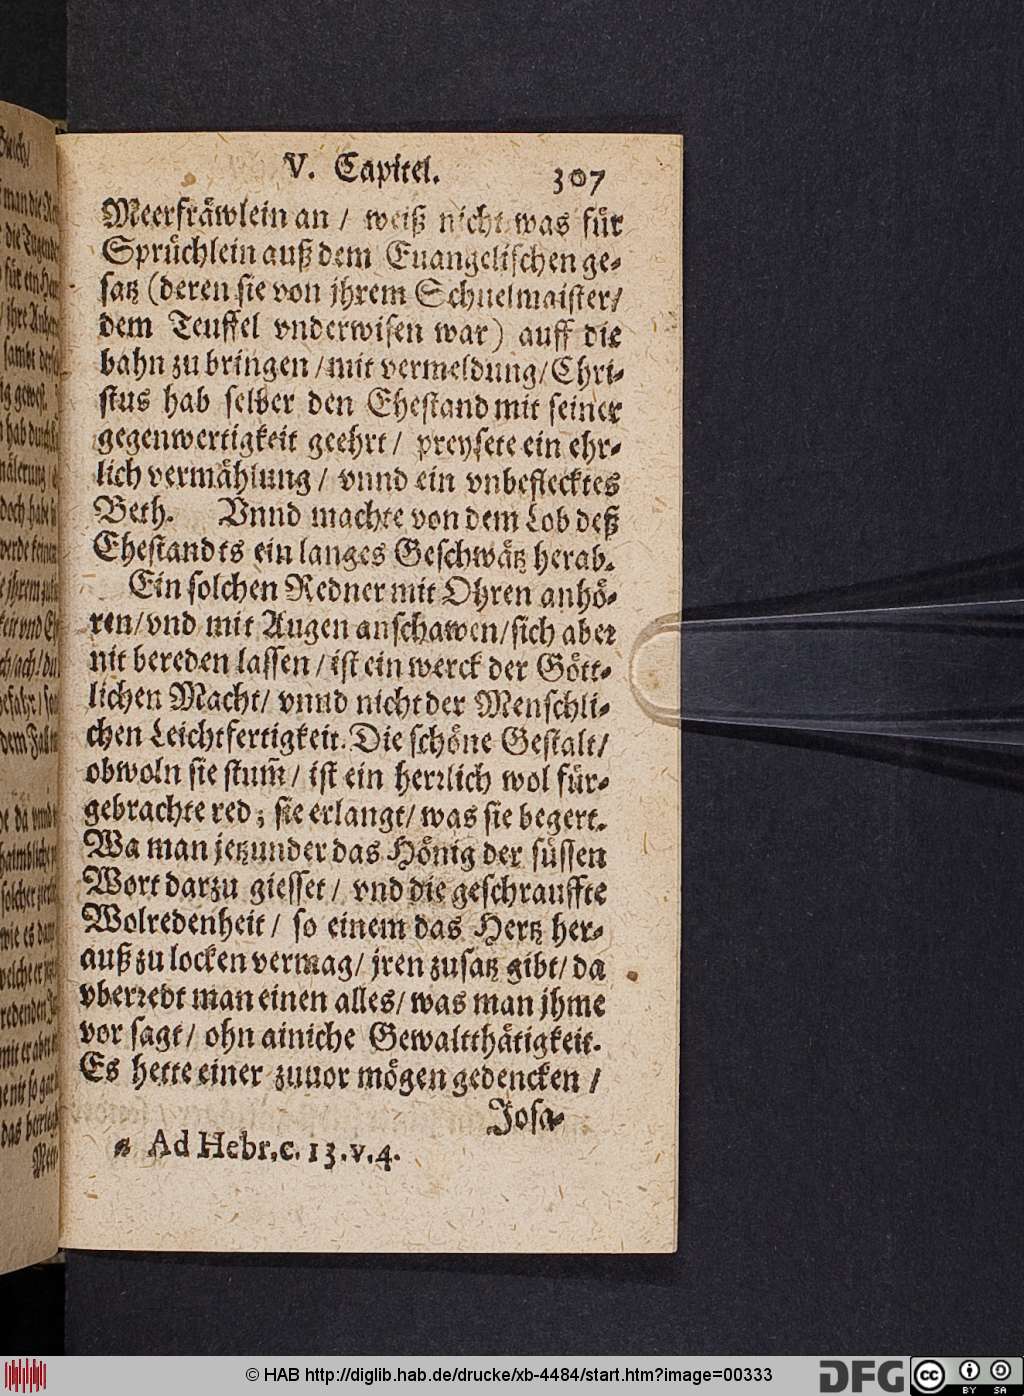 V. Capitel. 307
Meerfräwlein an / weiß nicht was für
Sprüchlein auß dem Euangelischen ge-
satz (deren sie von jhrem Schuelmaister/
dem Teuffel vnderwisen war) auff die
bahn zu bringen / mit vermeldung/ Chri-
stus hab selber den Ehestand mit seiner
gegenwertigkeit geehrt / preysete ein ehr-
lich vermählung / vnnd ein vnbeflecktes
Beth. Vnnd machte von dem Lob deß
Ehestandts ein langes Geschwätz herab.
Ein solchen Redner mit Ohren anhö-
ren/ vnd mit Augen anschawen/ sich aber
nit bereden lassen / ist ein werck der Gött-
lichen Macht/ vnnd nicht der Menschli-
chen Leichtfertigkeit. Die schöne Gestalt/
obwoln sie stum̃ / ist ein herꝛlich wol für-
gebrachte red; sie erlangt/ was sie begert.
Wa man jetzunder das Hönig der süssen
Wort darzu giesset / vnd die geschrauffte
Wolredenheit / so einem das Hertz her-
auß zu locken vermag/ jren zusatz gibt/ da
vberꝛedt man einen alles/ was man jhme
vor sagt/ ohn ainiche Gewaltthätigkeit.
Es hette einer zuuor mögen gedencken /
Josa-
Ad Hebr. c. 13. v. 4.
© HAB http://diglib.hab.de/drucke/xb-4484/start.htm?image=00333
DFG
cc
BY SA